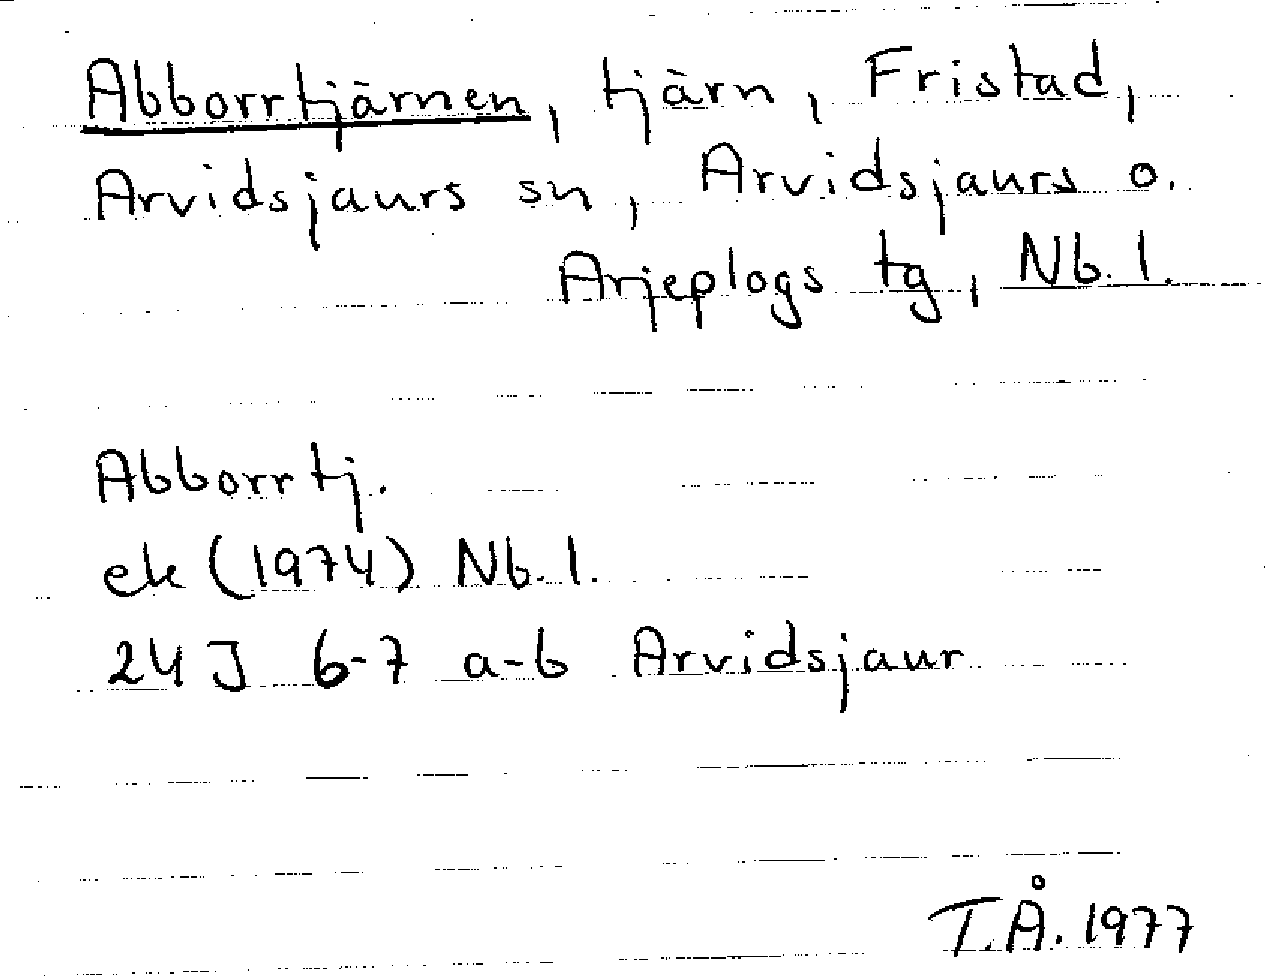 Abborrtjärnen, tjärn, Fristad,
Arvidsjaurs sn, Arvidsjaurs o.
Arjeplogs tg, Nb. l.
Abborrtj.
ek (1974) Nb. l.
24 J 6-7 a-b Arvidsjaur
T.Å. 1977